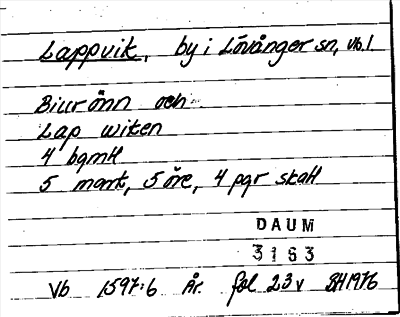 Lappvik, by i Lövånger sn, Vb.l
Biurönn och
Lap wiken
4 bgmtl
5 mark, 5 öre, 4 pgr skatt
DAUM
3163
Vb 1597:6 År. fol 23v BH 1976